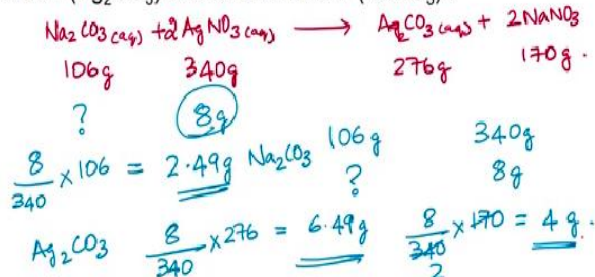 Na₂CO₃(aq) + 2AgNO₃(aq) ⟶ Ag₂CO₃(aq) + 2NaNO₃
106g 340g 276g 170g.
? 8g
8/340 × 106 = 2.49g Na₂CO₃ 106g 340g
? 8g
Ag₂CO₃ 8/340 × 276 = 6.49g 8/340 × 170 = 4g.
2